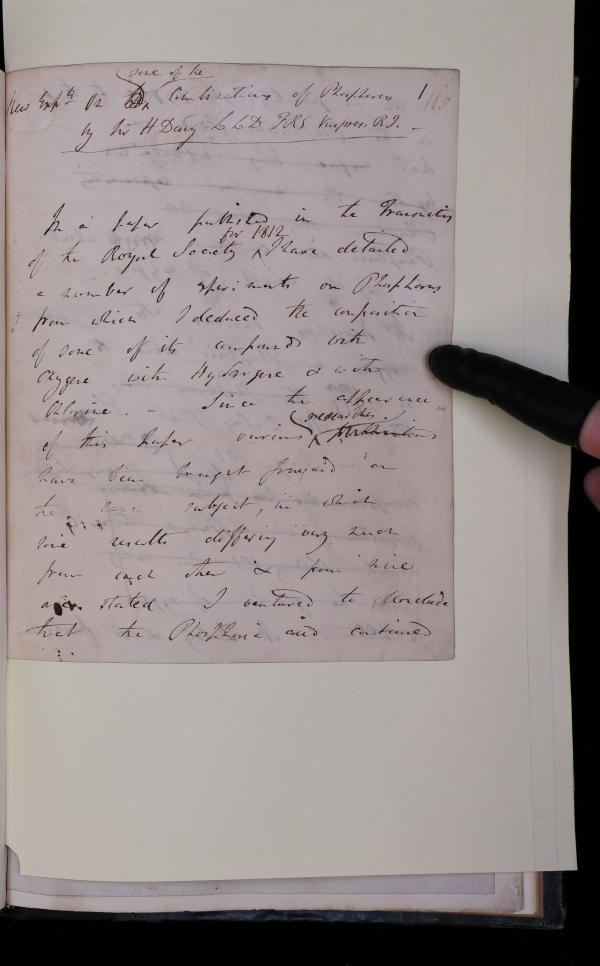 some of the
New Expts on Combinations of Phosphorus 1 165
by Sir H Davy L L D FRS Vice pres. R I. -
In a paper published in the Transactions
for 1812
of the Royal Society I have detailed
a number of experiments on Phosphorus
from which I deduced the composition
of some of its compounds with
oxygene with Hydrogene & with
Chlorine. - Since the appearance
researches
of this paper various
have been brought forward on
the same subject, in which
nice results differing very much
from each other & from mine
are stated. I ventured to conclude
that the Phosphoric acid contained